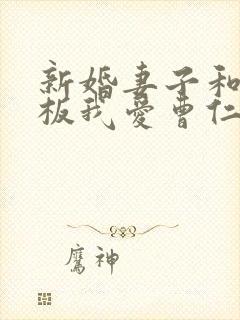 新婚妻子和
板我爱曹仁
鹰神